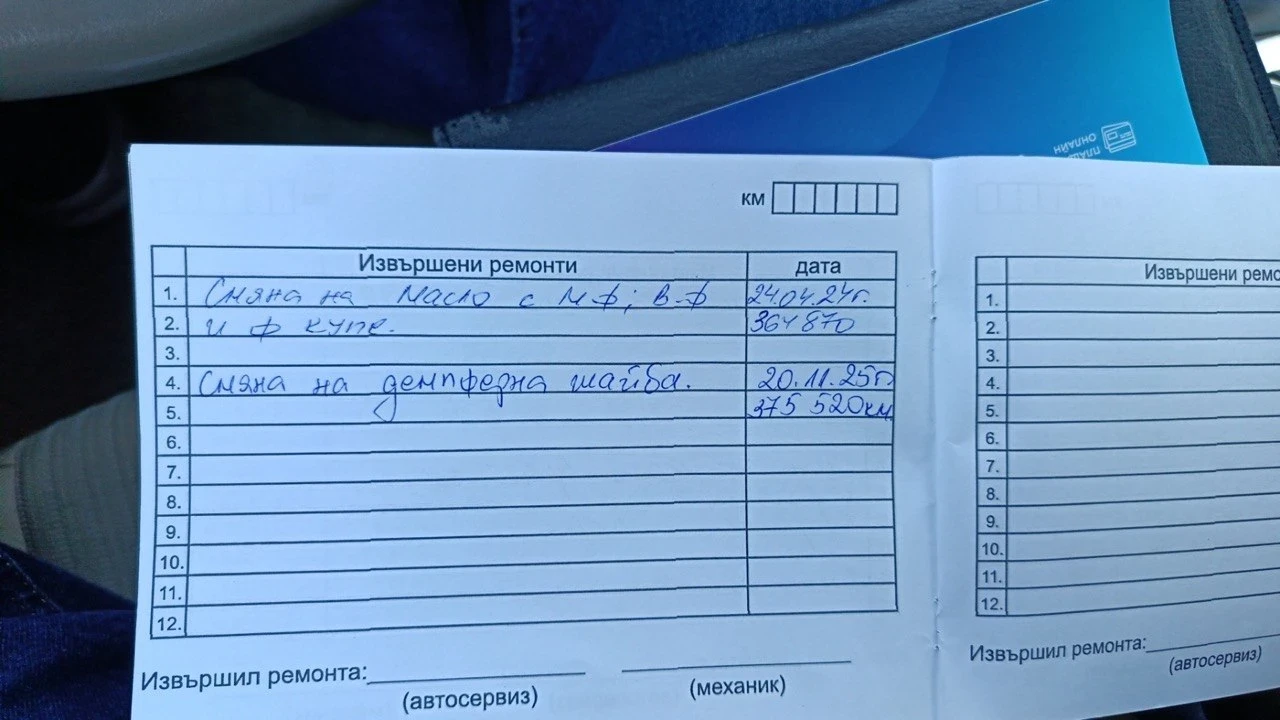 ПЛАЩАЙ
ОНЛАЙН
км
Извършени ремонти дата
1. Смяна на масло с м.ф; в.ф 24.04.24г.
2. и ф купе. 364 870
3.
4. Смяна на демпферна шайба. 20.11.25г
5. 375 520км
6.
7.
8.
9.
10.
11.
12.
Извършил ремонта:
(автосервиз) (механик)
Извършени ремо
1.
2.
3.
4.
5.
6.
7.
8.
9.
10.
11.
12.
Извършил ремонта:
(автосервиз)